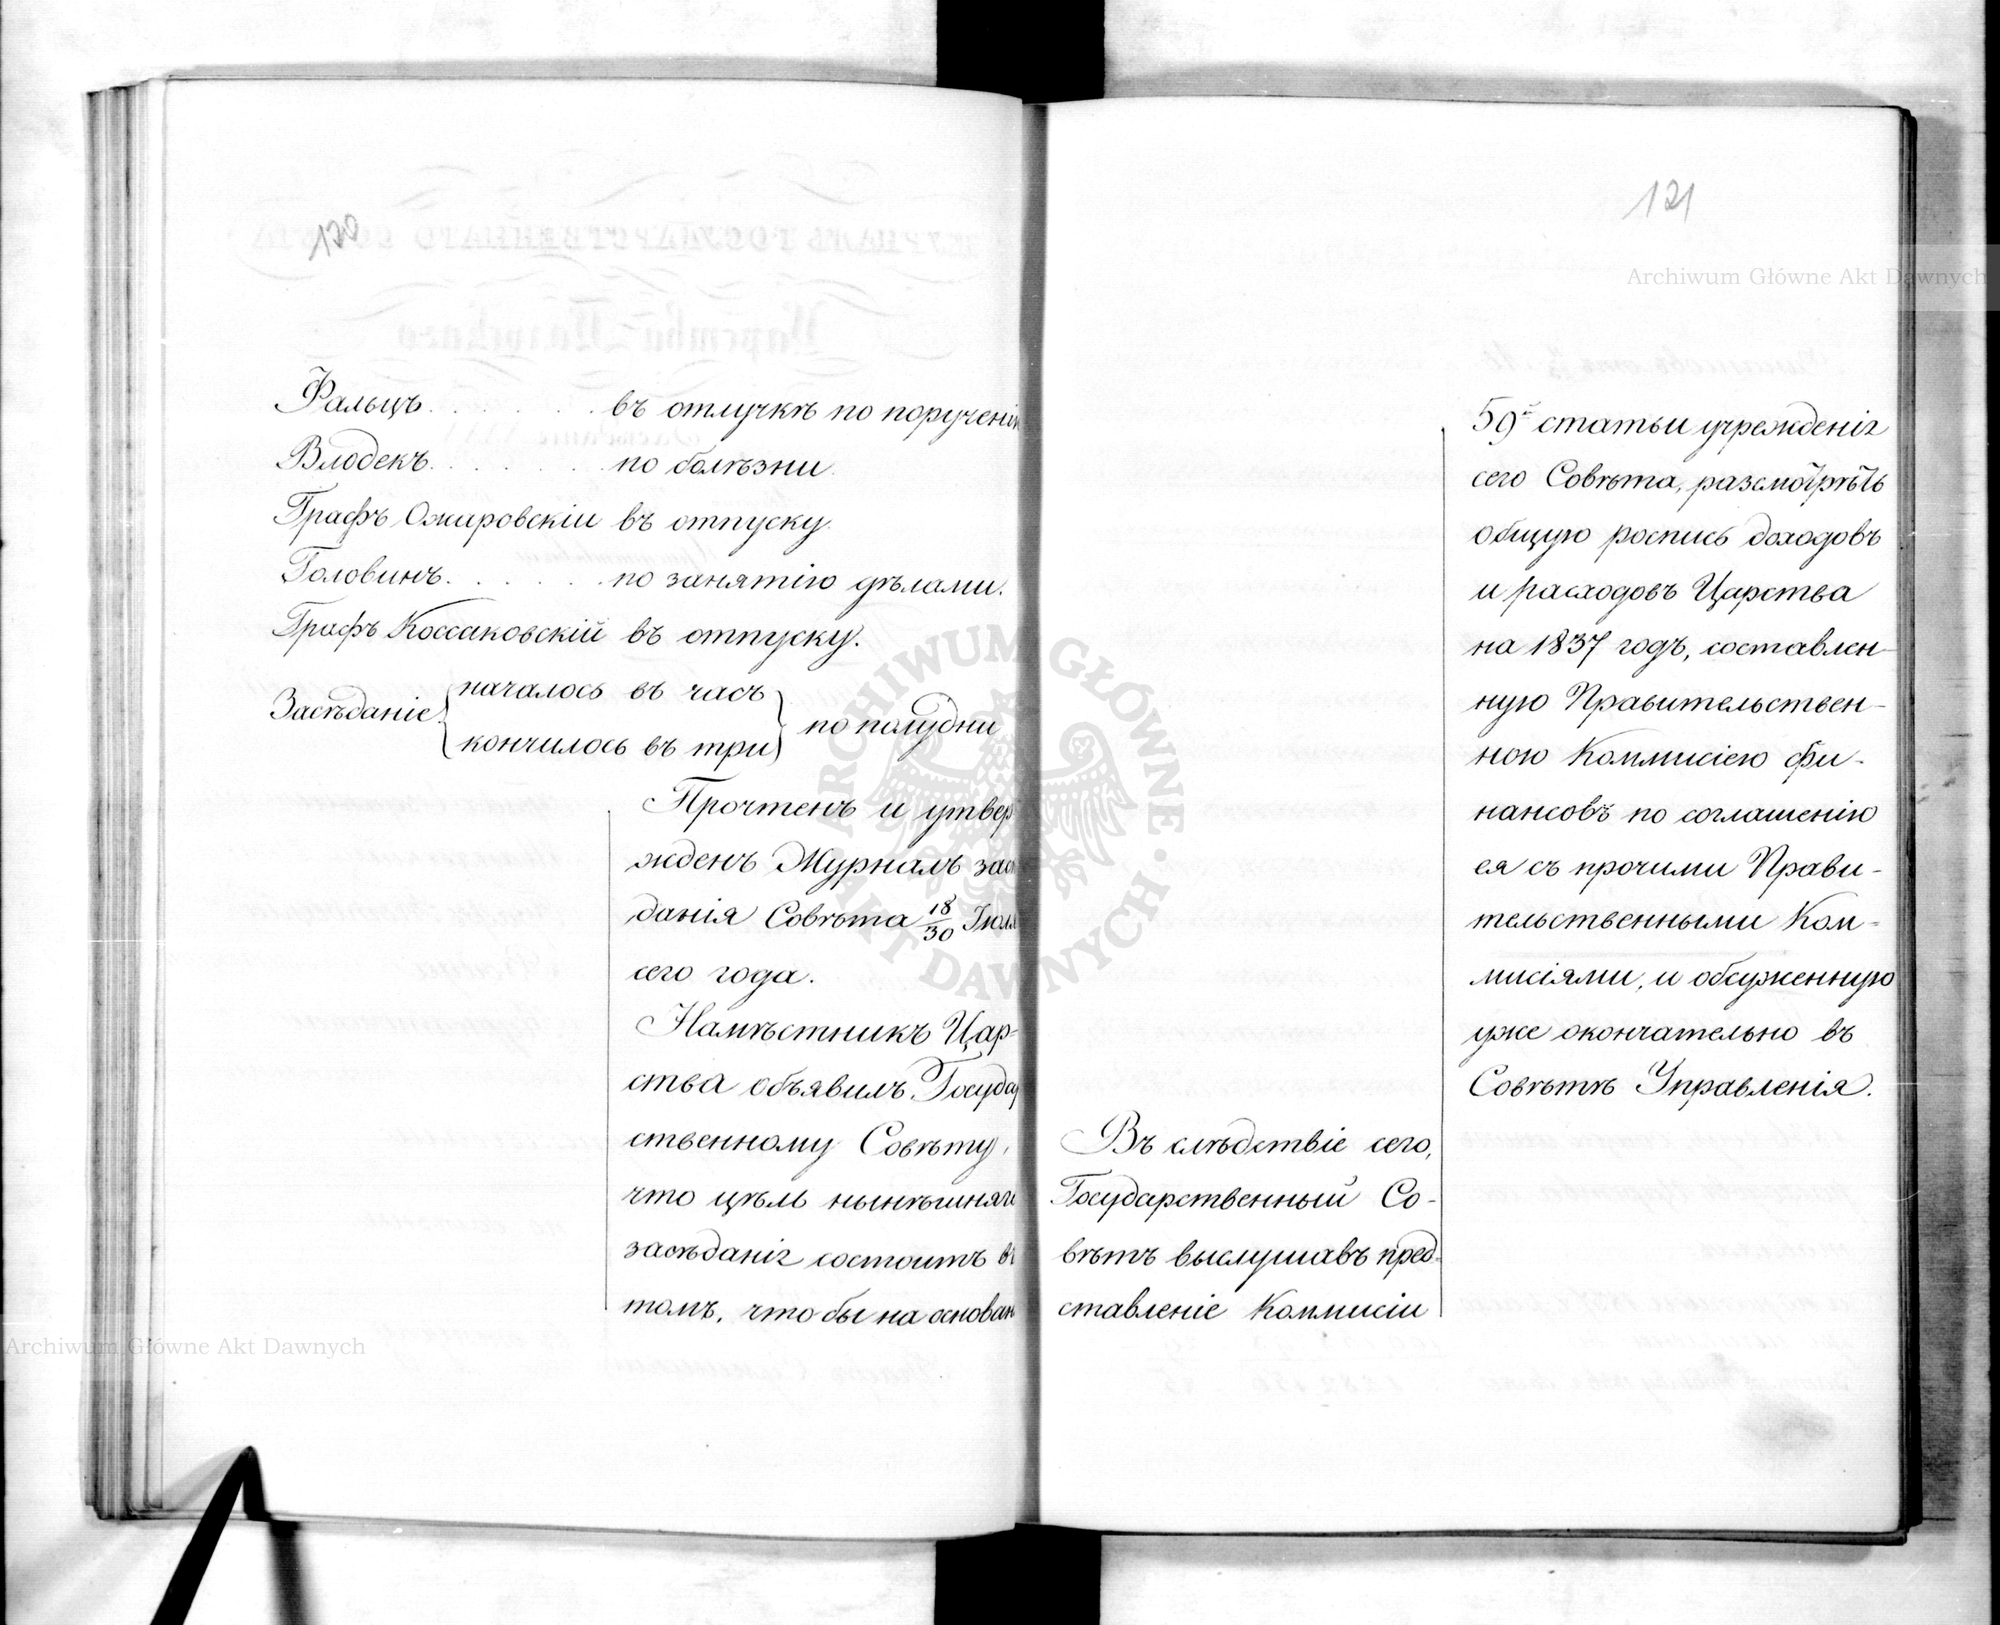 120
Фальцъ . . . . . . . въ отлучкѣ по порученію
Влодекъ . . . . . . . по болѣзни.
Графъ Ожаровскiи въ отпуску.
Головинъ . . . . . . по занятію дѣлами.
Графъ Коссаковскій въ отпуску.
Засѣданіе
началось въ часъ
кончилось въ три
по полудни
Прочтенъ и утвер
жденъ Журналъ засѣ
данія Совѣта 18/30 Іюля
сего года.
Намѣстникъ Цар-
ства объявилъ Государ
ственному Совѣту,
что цѣль нынѣшняго
засѣданіz состоитъ въ
томъ, что бы на основан
121
59й статьи учрежденіz
сего Совѣта, разсмотрѣть
общую роспись доходовъ
и расходовъ Царства
на 1837 годъ, составлен-
ную Правительствен-
ною Коммисіею фи-
нансовъ по соглашенію
ея съ прочими Прави-
тельственными Ком-
мисіями, и обсужденную
уже окончательно въ
Совѣтѣ Управленія.
Въ слѣдствіе сего,
Государственный Со-
вѣтъ выслушавъ пред-
ставленіе Коммисіи
Archiwum Główne Akt Dawnych
Archiwum Główne Akt Dawnych
ARCHIWUM GŁÓWNE AKT DAWNYCH